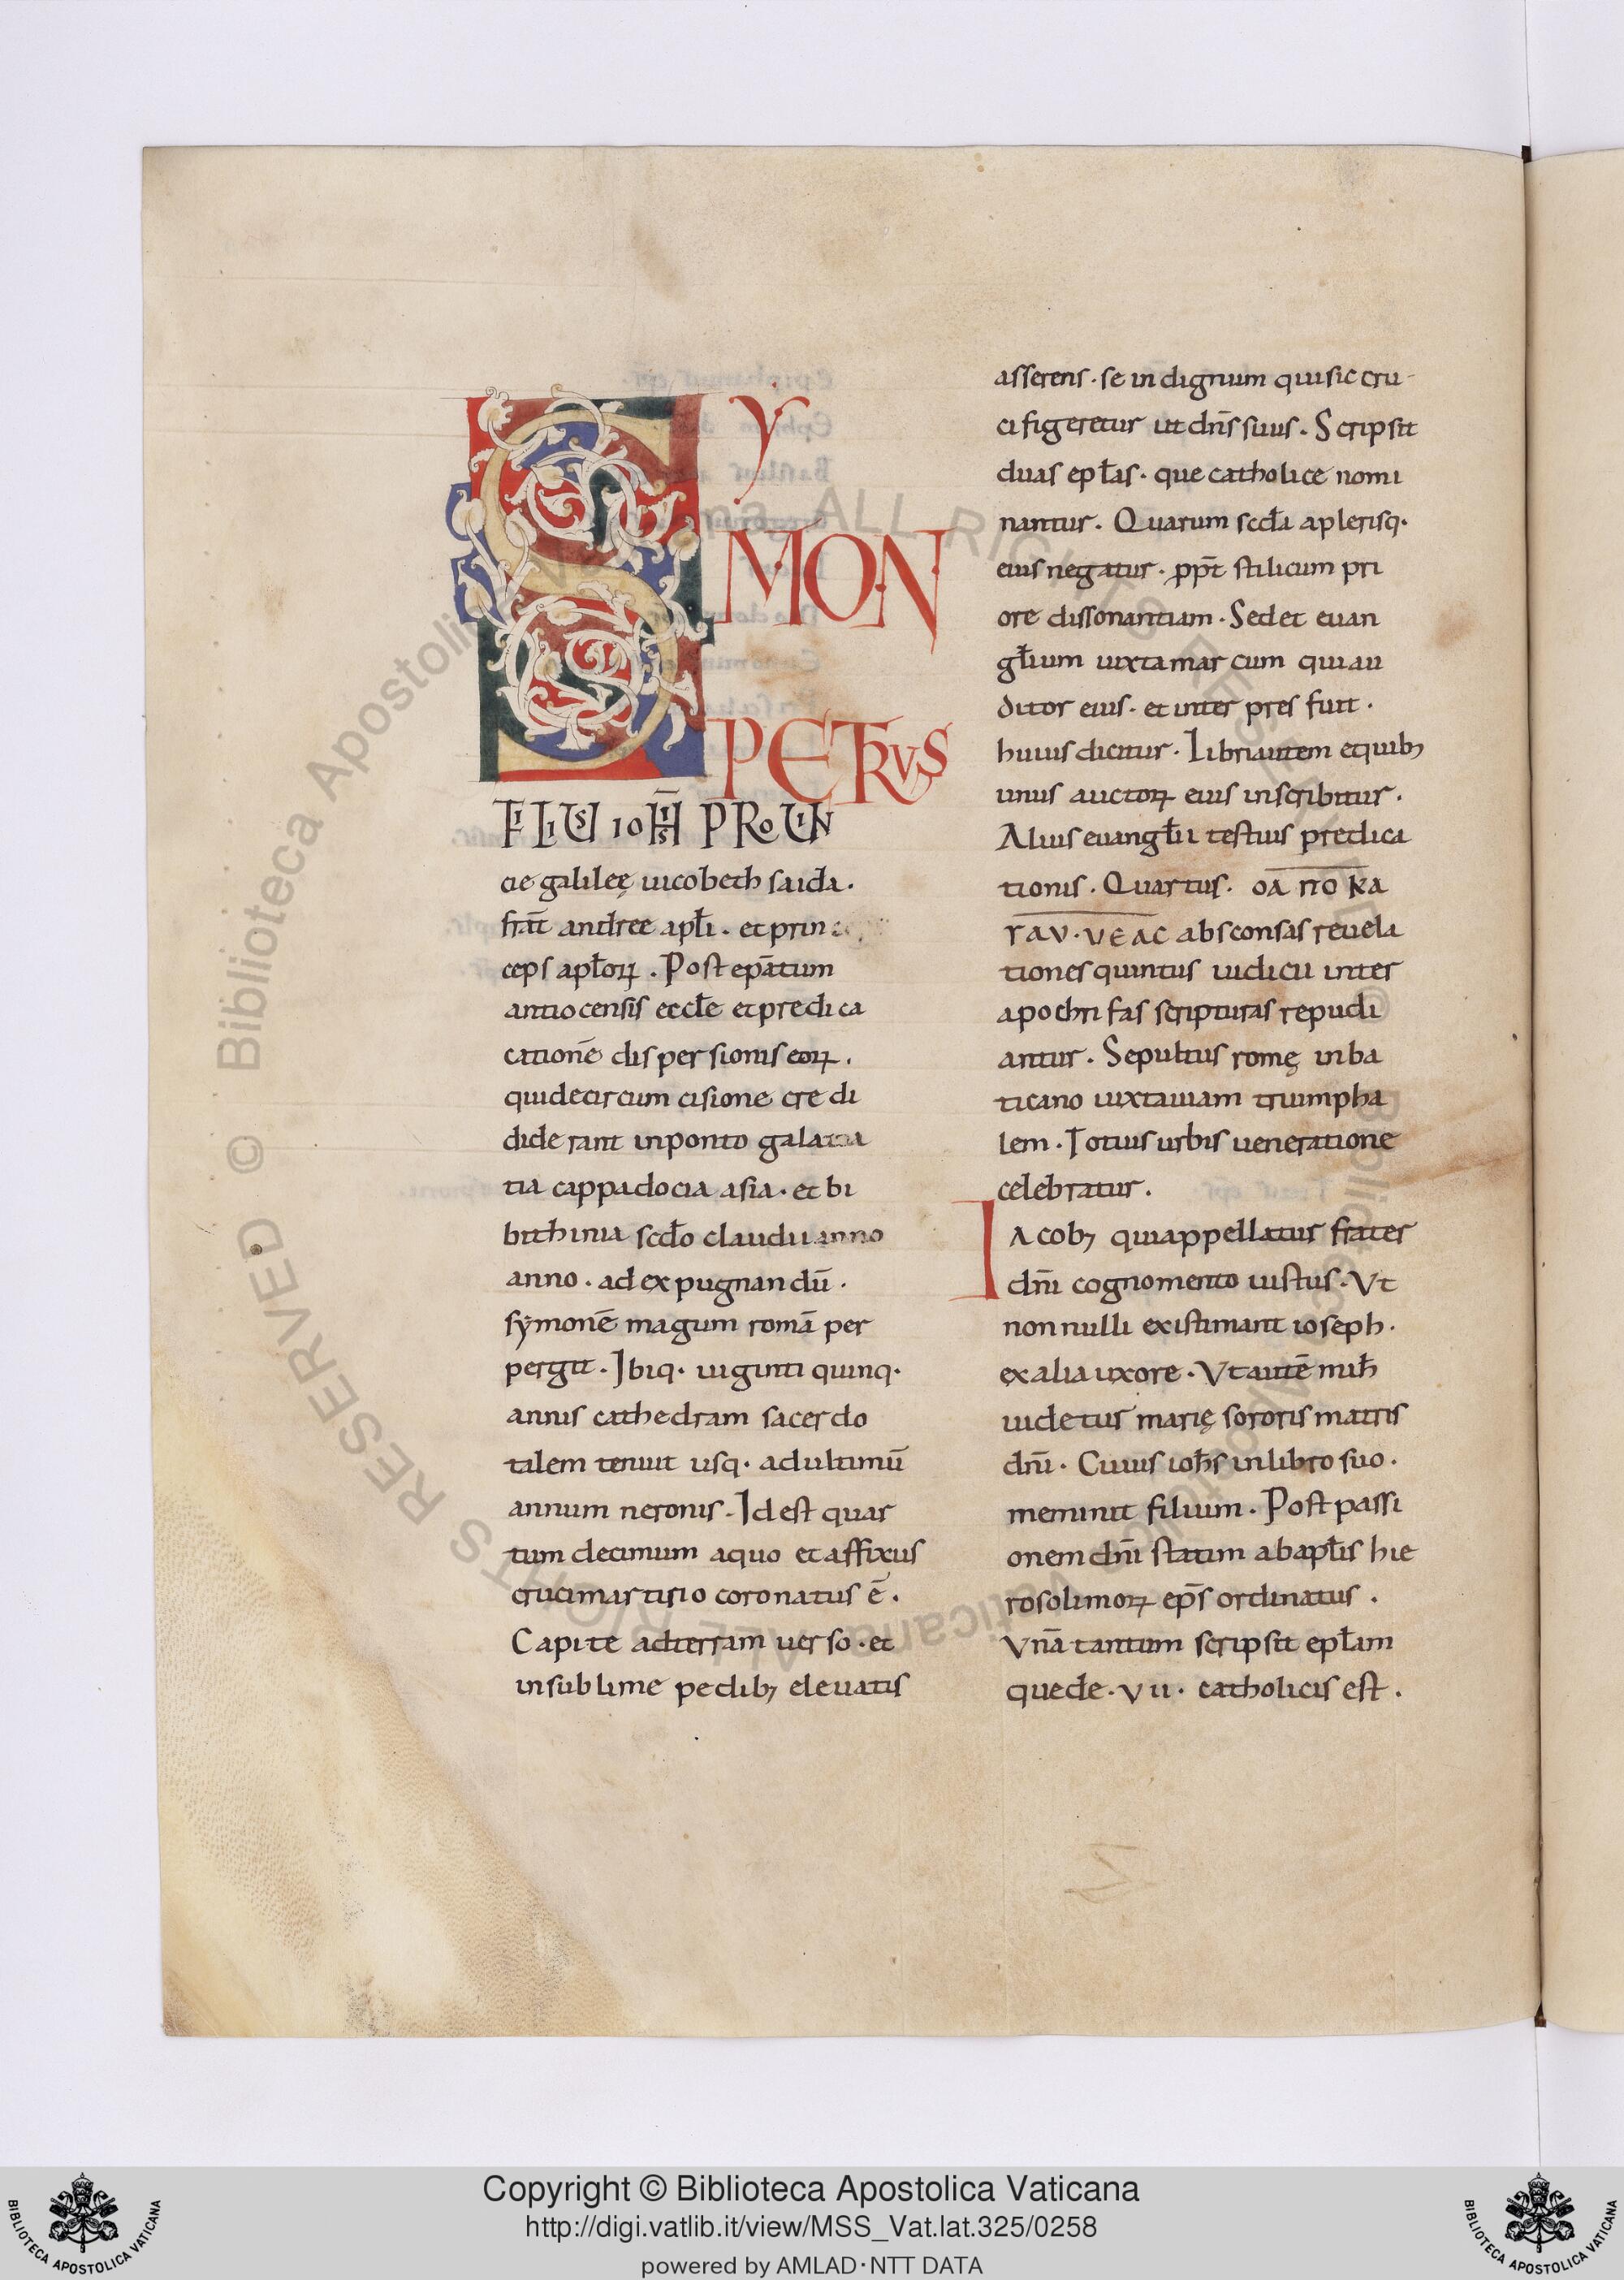 SY
MON
PETRVS
FILIUS IOHIS PROUIN
cie galileę uicobeth saida.
frat̄ andree apłi. et prin
ceps apło4. Post ep̄atum
antiocensis eccłe et predica
cationē dispersionis eo4.
quidecircum cisione credi
diderant inponto galatia
tia cappadocia asia. et bi
bithinia scdo claudii anno
anno. ad expugnandū.
symonē magum romā per
pergit. Ibiq. uiginti quinq.
annis cathedram sacerdo
talem tenuit usq. adultimū
annum neronis. Idest quar
tum decimum aquo et affixus
crucimartirio coronatus ē.
Capite adterram uerso. et
insublime pedib; eleuatis
asserens. se indignum quisic cru-
cifigeretur ut dn̄s suus. Scripsit
duas epłas. que catholice nomi
nantur. Quarum sccda aplerisq.
eius negatur. ppt̄ stilicum pri
ore dissonantiam. Sedet euan
głium iuxtamarcum quiau
ditor eius. et interpres fuit.
huius dicitur. Libriautem equib;
unus aucto4 eius inscribitur.
Alius euangłii testius predica
tionis. Quartus. oa no ka
rav. ve ac absconsas reuela
tiones quintus iudicii inter
apochrifas scripturas repudi
antur. Sepultus romę inba
ticano iuxtauiam triumpha
lem. Totius urbis ueneratione
celebratur.
Iacob; quiappellatur frater
dn̄i cognomento iustus. Vt
nonnulli existimant ioseph.
exalia uxore. Vtautē mih̄
uidetur marię sororis matris
dn̄i. Cuius ioh̄s inlibro suo.
meminit filium. Post passi
onem dn̄i statim abapłis hie
rosolimo4 ep̄s ordinatus.
Vnā tantum scripsit epłam
quede. VII. catholicis est.
© Biblioteca Apostolica Vaticana ALL RIGHTS RESERVED
© Biblioteca Apostolica Vaticana ALL RIGHTS RESERVED
Copyright © Biblioteca Apostolica Vaticana
http://digi.vatlib.it/view/MSS_Vat.lat.325/0258
powered by AMLAD·NTT DATA
BIBLIOTECA APOSTOLICA VATICANA
BIBLIOTECA APOSTOLICA VATICANA